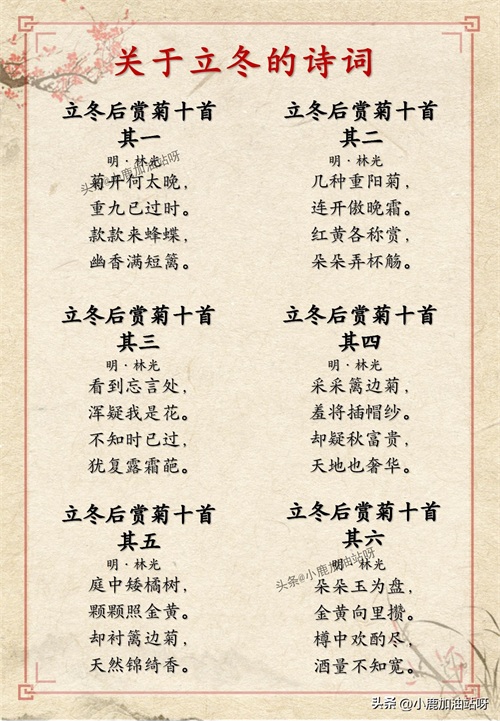 关于立冬的诗词
立冬后赏菊十首
其一
明·林光
菊开何太晚，
重九已过时。
款款来蜂蝶，
幽香满短篱。
立冬后赏菊十首
其二
明·林光
几种重阳菊，
连开傲晚霜。
红黄各称赏，
朵朵弄杯觞。
立冬后赏菊十首
其三
明·林光
看到忘言处，
浑疑我是花。
不知时已过，
犹复露霜葩。
立冬后赏菊十首
其四
明·林光
采采篱边菊，
羞将插帽纱。
却疑秋富贵，
天地也奢华。
立冬后赏菊十首
其五
明·林光
庭中矮橘树，
颗颗照金黄。
却衬篱边菊，
天然锦绮香。
立冬后赏菊十首
其六
明·林光
朵朵玉为盘，
金黄向里攒。
樽中欢酌尽，
酒量不知宽。
头条@小鹿加油站呀
头条@小鹿加油站呀
头条@小鹿加油站呀